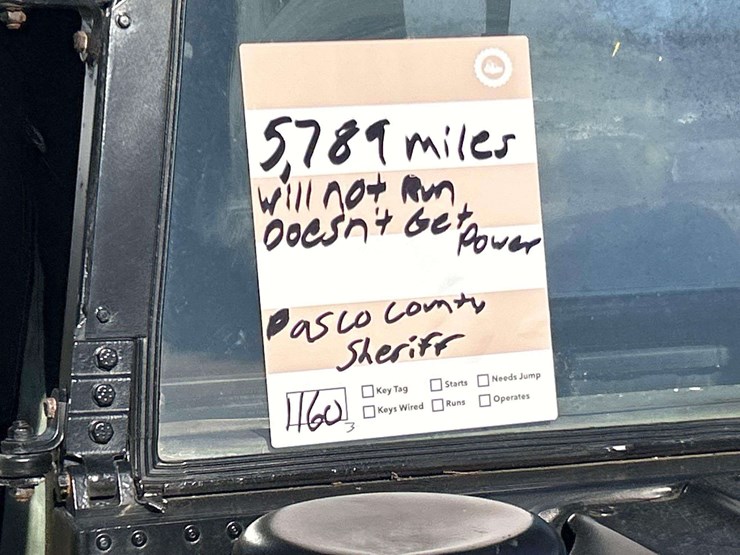 5,789 miles
Will not Run
Doesn't Get
Power
Pasco County
Sheriff
1160
3
Key Tag
Starts
Needs Jump
Keys Wired
Runs
Operates